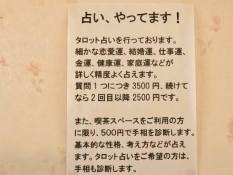 占い、やってます！
タロット占いを行っております。
細かな恋愛運、結婚運、仕事運、
金運、健康運、家庭運などが
詳しく精度よく占えます。
質問１つにつき3500円、続けて
なら２回目以降2500円です。
また、喫茶スペースをご利用の方
に限り、500円で手相を診断します。
基本的な性格、考え方などが占え
ます。タロット占いをご希望の方は、
手相も診断します。